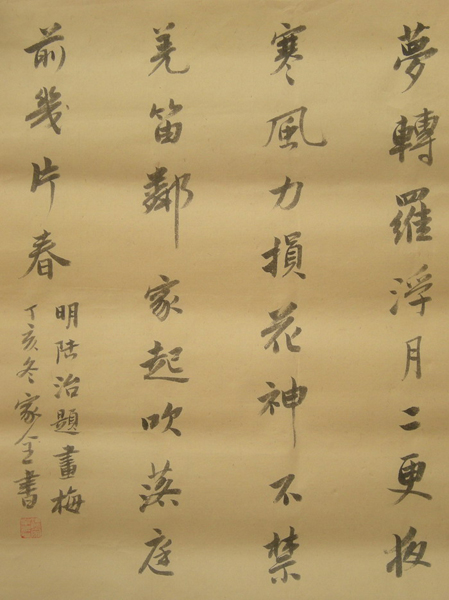 夢轉羅浮月二更夜
寒風力損花神不禁
羌笛鄰家起吹落庭
前幾片春
明陸治題畫梅
丁亥冬家全書